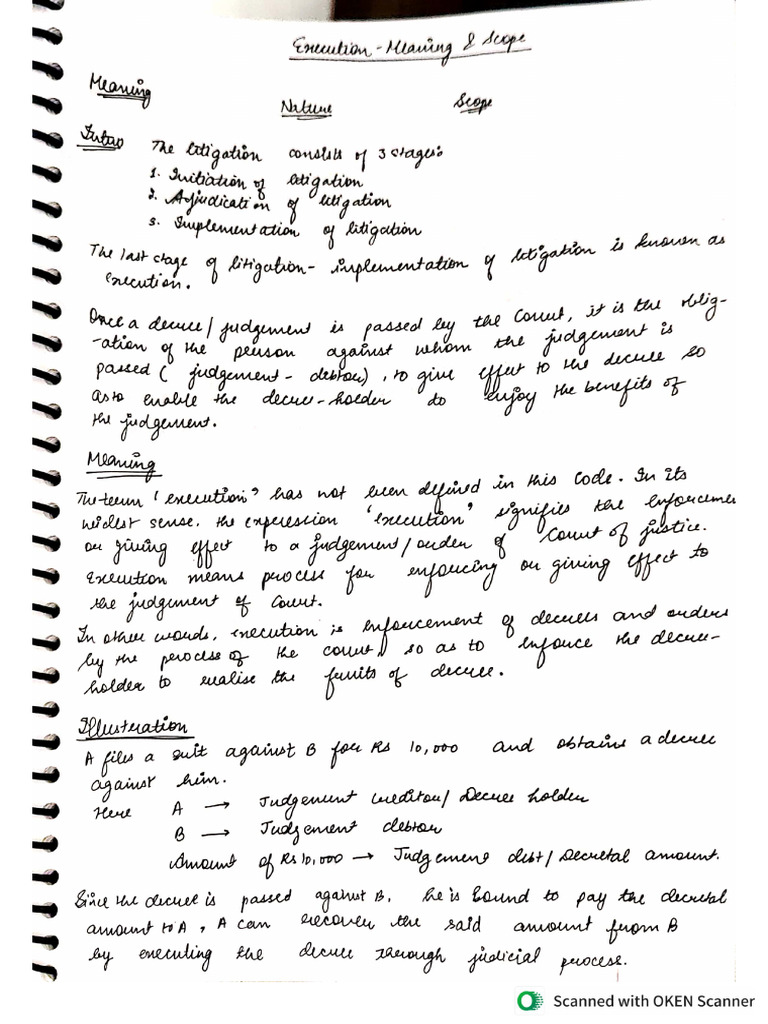 Execution - Meaning & Scope
Meaning
Nature
Scope
Intro
The litigation consists of 3 stages:
1. Initiation of litigation
2. Adjudication of litigation
3. Implementation of litigation
The last stage of litigation - implementation of litigation is known as
execution.
Once a decree/judgement is passed by the Court, it is the oblig-
-ation of the person against whom the judgement is
passed (judgement-debtor), to give effect to the decree so
as to enable the decree-holder to enjoy the benefits of
the judgement.
Meaning
The term 'execution' has not been defined in this Code. In its
widest sense, the expression 'execution' signifies the enforcemen
or giving effect to a judgement/order of Court of justice.
Execution means process for enforcing or giving effect to
the judgement of Court.
In other words, execution is enforcement of decrees and orders
by the process of the court, so as to enforce the decree-
holder to realise the fruits of decree.
Illustration
A files a suit against B for Rs 10,000 and obtains a decree
against him.
Here A → Judgement creditor/ Decree holder
B → Judgement debtor
Amount of Rs 10,000 → Judgement debt/ Decretal amount.
Since the decree is passed against B, he is bound to pay the decretal
amount to A, A can recover the said amount from B
by executing the decree through judicial process.
Scanned with OKEN Scanner